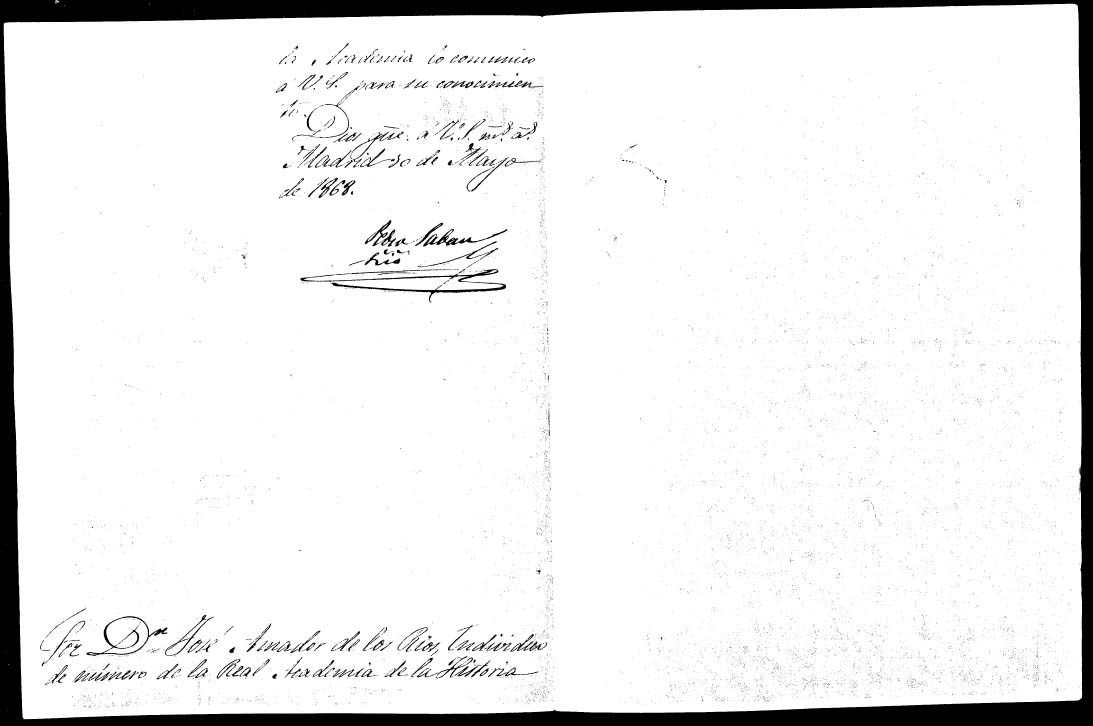 la Academia lo comunico
á V. S. para su conocimien
to.
Dios gũe. á V. S. m.ˢ a.ˢ
Madrid 30 de Mayo
de 1868.
Pedro Sabau
Srio
Sor Dⁿ José Amador de los Rios, Individuo
de número de la Real Academia de la Historia